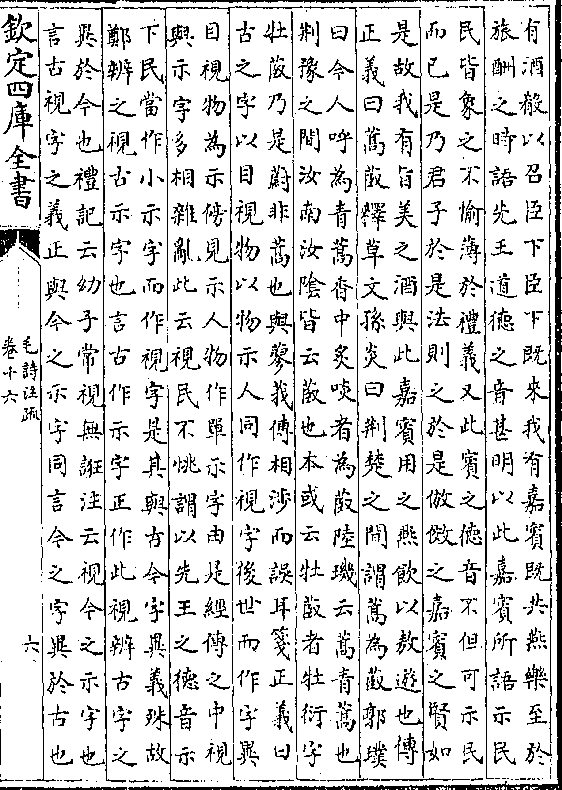 有酒殽以召臣下臣下既來我有嘉賓既共燕樂至於
旅酬之時語先王道德之音甚明以此嘉賓所語示民
民皆象之不愉薄於禮義又此賓之德音不但可示民
而已是乃君子於是法則之於是倣傚之嘉賓之賢如
是故我有旨美之酒與此嘉賓用之燕飲以敖遊也傳
正義曰蒿菣釋草文孫炎曰荆楚之間謂蒿為菣郭璞
曰今人呼為青蒿香中炙啖者為菣陸璣云蒿青蒿也
荆豫之間汝南汝陰皆云菣也本或云牡菣者牡衍字
牡菣乃是蔚非蒿也與蓼莪傳相涉而誤耳箋正義曰
古之字以目視物以物示人同作視字後世而作字異
目視物為示傍見示人物作單示字由是經傳之中視
與示字多相雜亂此云視民不恌謂以先王之德音示
下民當作小示字而作視字是其與古今字異義殊故
鄭辨之視古示字也言古作示字正作此視辨古字之
異於今也禮記云幼子常視無誑注云視今之示字也
言古視字之義正與今之示字同言今之字異於古也
欽定四庫全書
毛詩注疏
卷十六
六